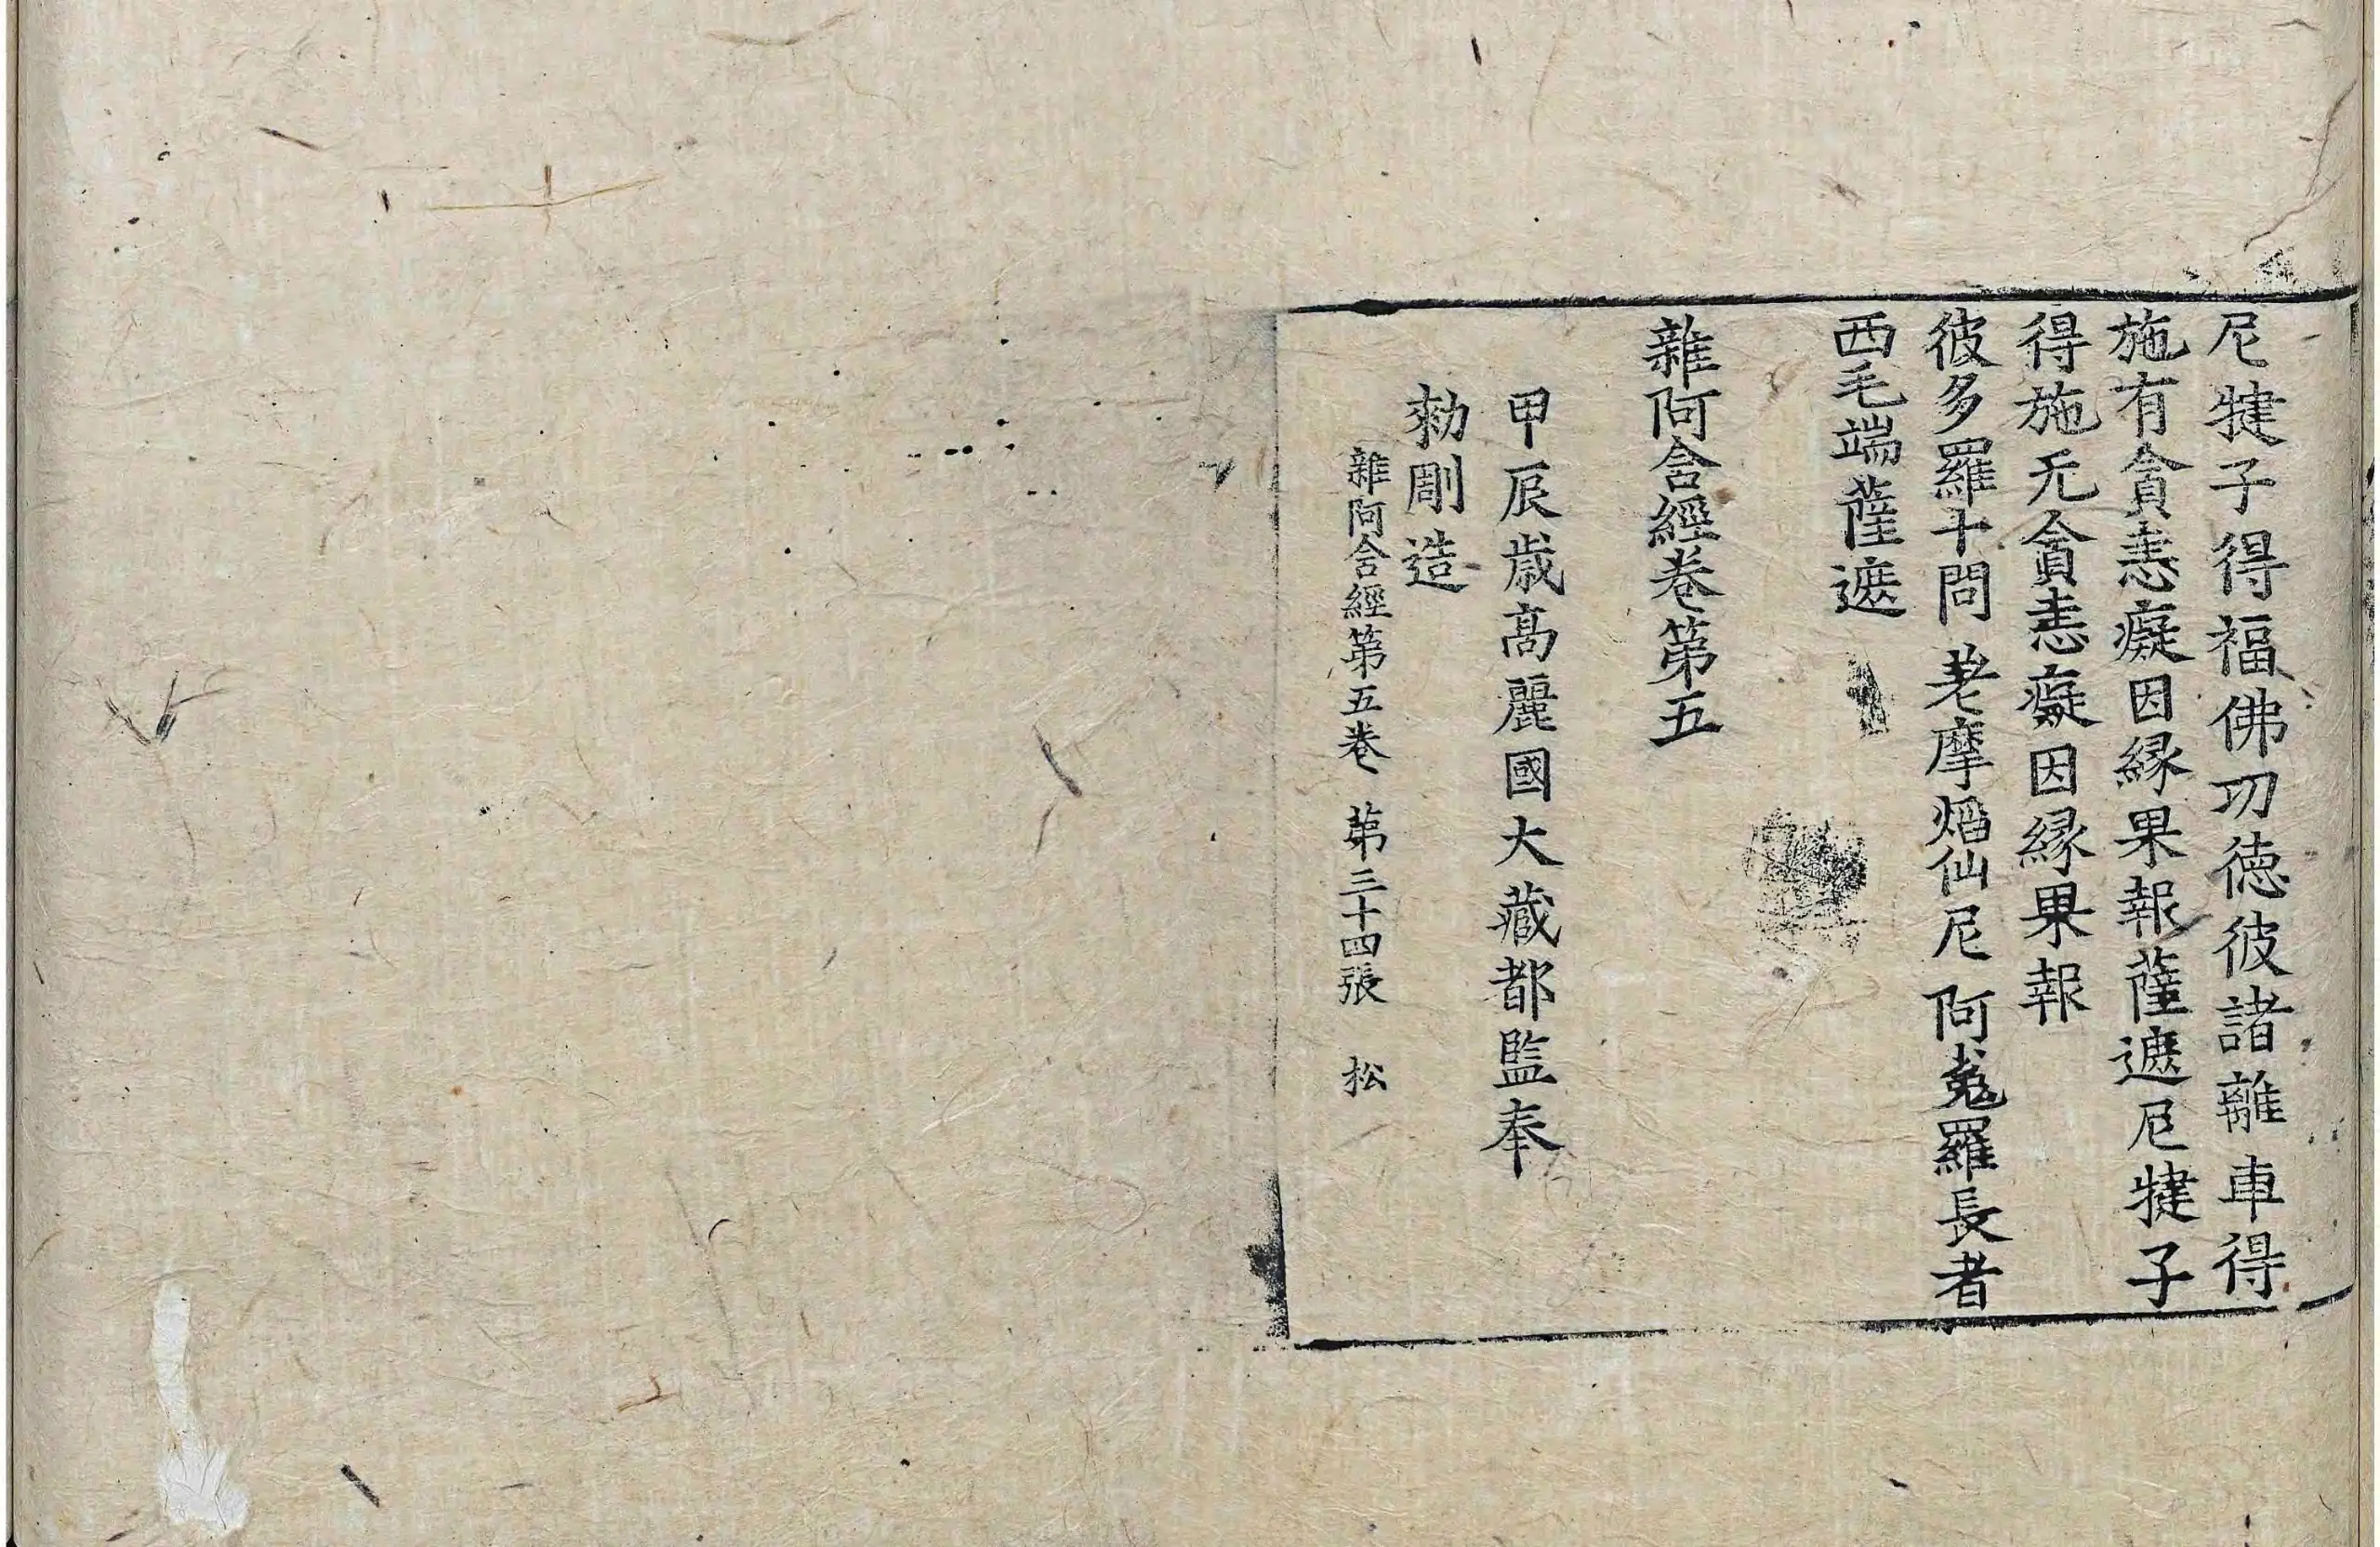 尼犍子得福佛功德彼諸離車得
施有貪恚癡因緣果報薩遮尼犍子
得施无貪恚癡因緣果報
彼多羅十問 差摩焰仙尼 阿㝹羅長者
西毛端薩遮
雜阿含經卷第五
甲辰歲高麗國大藏都監奉
勑彫造
雜阿含經第五卷 第三十四張 松